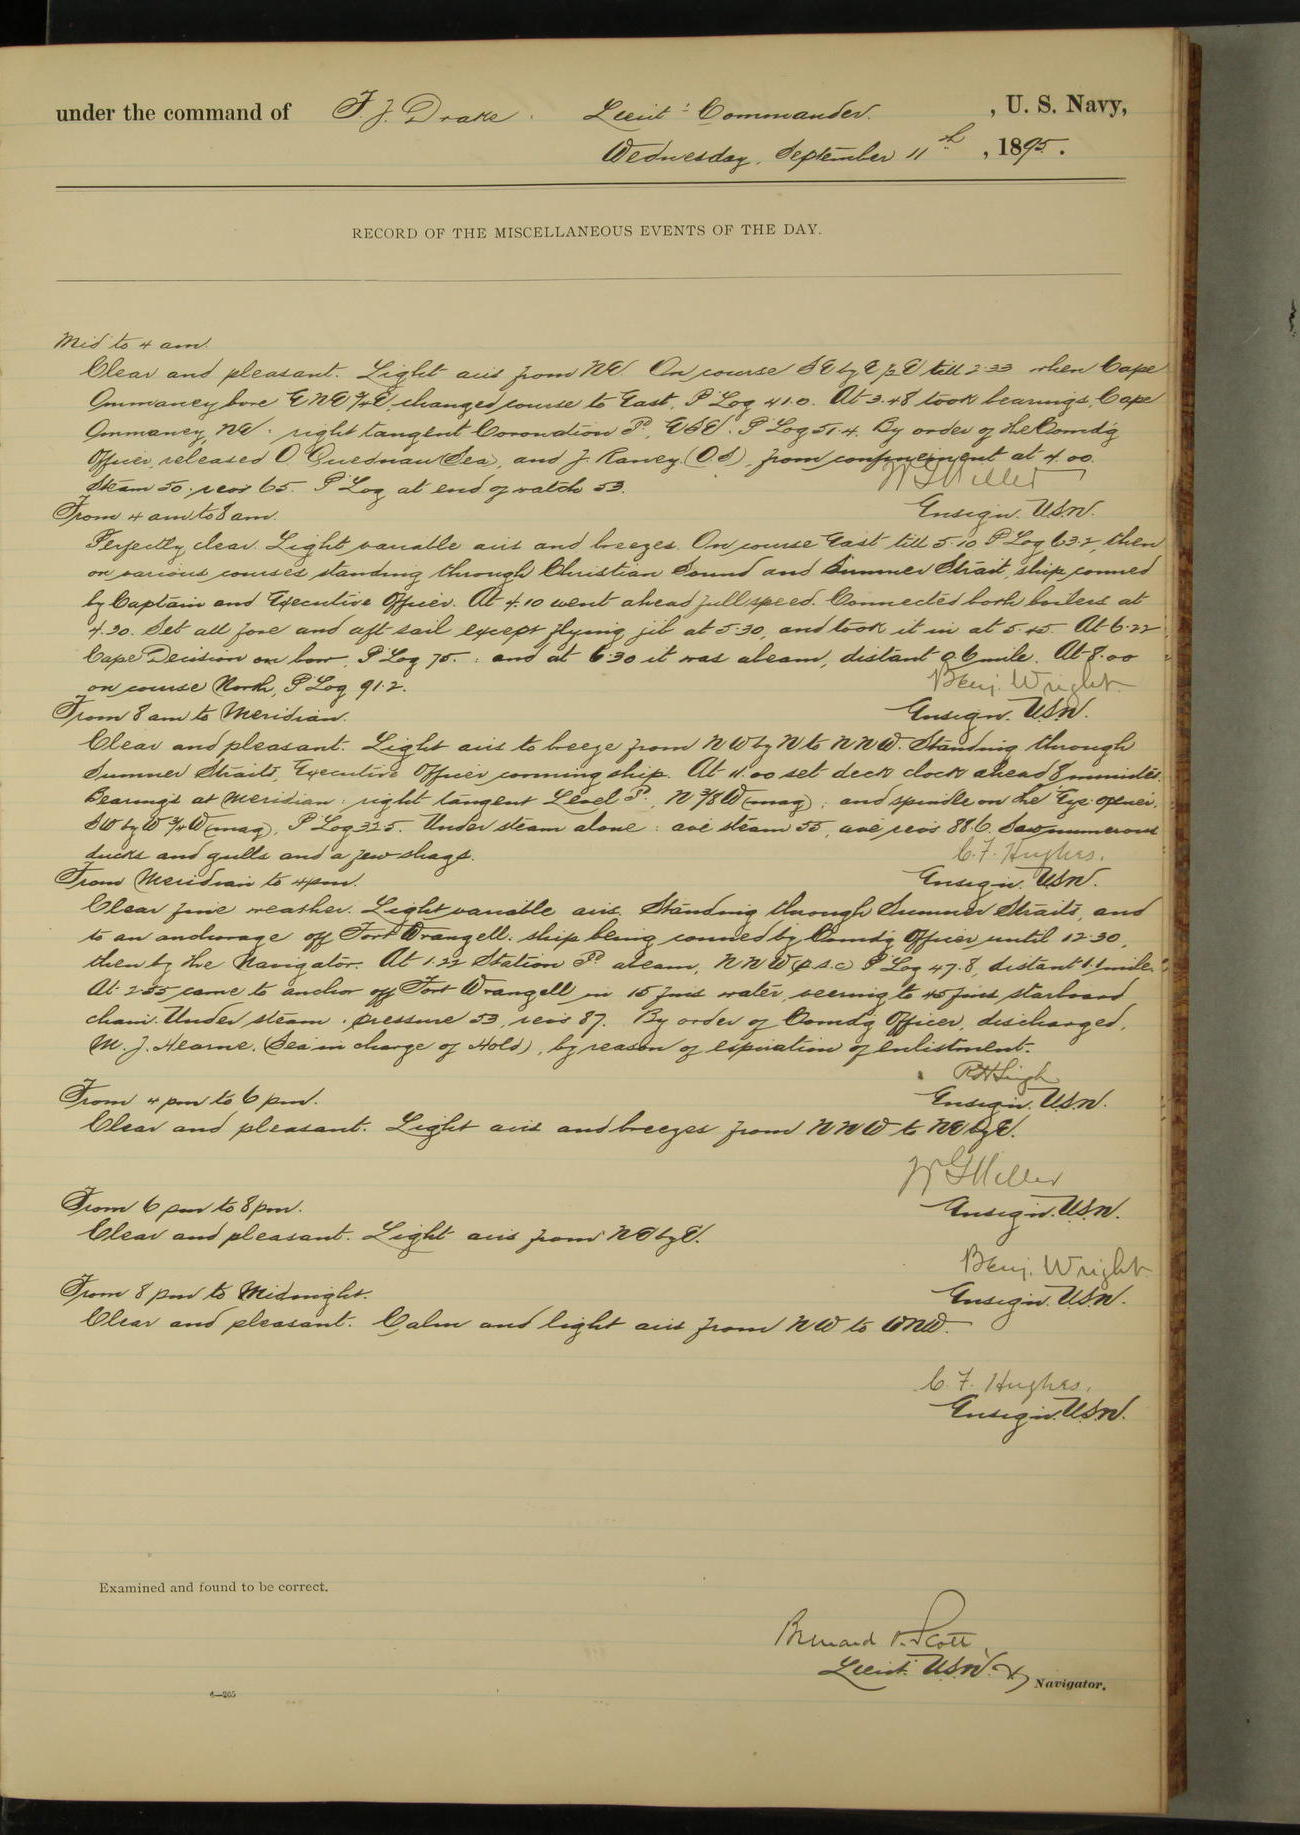 under the command of F. J. Drake. Lieut: Commander. , U. S. Navy,
Wednesday, September 11th , 1895.
RECORD OF THE MISCELLANEOUS EVENTS OF THE DAY.
Mid to 4 am.
Clear and pleasant. Light airs from NE. On course SE by E ½ E till 2.33 when Cape
Ommaney bore ENE ¾ E, changed course to East, P Log 41.0. At 3.48 took bearings, Cape
Ommaney, NE: right tangent Coronation Id., ESE. P Log 51.4. By order of the Comd'g
Officer, released O. Quednau (Sea), and J. Raney (OS), from confinement at 4.00.
Steam 50: revs 65. P Log at end of watch 53.
W G Miller
Ensign. U.S.N.
From 4 am to 8 am.
Perfectly clear. Light variable airs and breezes. On course East till 5.10 P Log 63.2, then
on various courses standing through Christian Sound and Sumner Strait, ship conned
by Captain and Executive Officer. At 4.10 went ahead full speed. Connected both boilers at
4.30. Set all fore and aft sail except flying jib at 5.30, and took it in at 5.45. At 6.22
Cape Decision on bow, P Log 75.: and at 6.30 it was abeam, distant 0.6 mile. At 8.00
on course North, P Log 91.2.
Benj. Wright.
Ensign. U.S.N.
From 8 am to Meridian.
Clear and pleasant. Light airs to breeze from NW by N to NNW. Standing through
Sumner Straits, Executive Officer conning ship. At 11.00 set deck clock ahead 8 minutes.
Bearings at Meridian: right tangent Level Id., N ⅜ W (mag); and spindle on the Eye Opener,
SW by W ¾ W (mag), P Log 32.5. Under steam alone: ave steam 55, ave revs 88.6. Saw numerous
ducks and gulls and a few shags.
C. F. Hughes.
Ensign. U.S.N.
From Meridian to 4 pm.
Clear fine weather. Light variable airs. Standing through Sumner Straits, and
to an anchorage off Fort Wrangell: ship being conned by Comd'g Officer until 12.30,
then by the Navigator. At 1.22 Station Id. abeam, NNW (p.s.c.) P Log 47.8, distant 1.1 mile.
At 2.55 came to anchor off Fort Wrangell in 15 fms water, veering to 45 fms starboard
chain. Under steam: pressure 53, revs 87. By order of Comd'g Officer, discharged,
M. J. Hearne, (Sea in charge of Hold), by reason of expiration of enlistment.
Ensign. U.S.N.
From 4 pm to 6 pm.
Clear and pleasant. Light airs and breezes from NNW to NE by E.
W G Miller
Ensign. U.S.N.
From 6 pm to 8 pm.
Clear and pleasant. Light airs from NE by E.
Benj. Wright
Ensign. U.S.N.
From 8 pm to Midnight.
Clear and pleasant. Calm and light airs from NW to WNW.
C. F. Hughes.
Ensign. U.S.N.
Examined and found to be correct.
Bernard O. Scott,
Lieut. U.S.N. & Navigator.
6—205